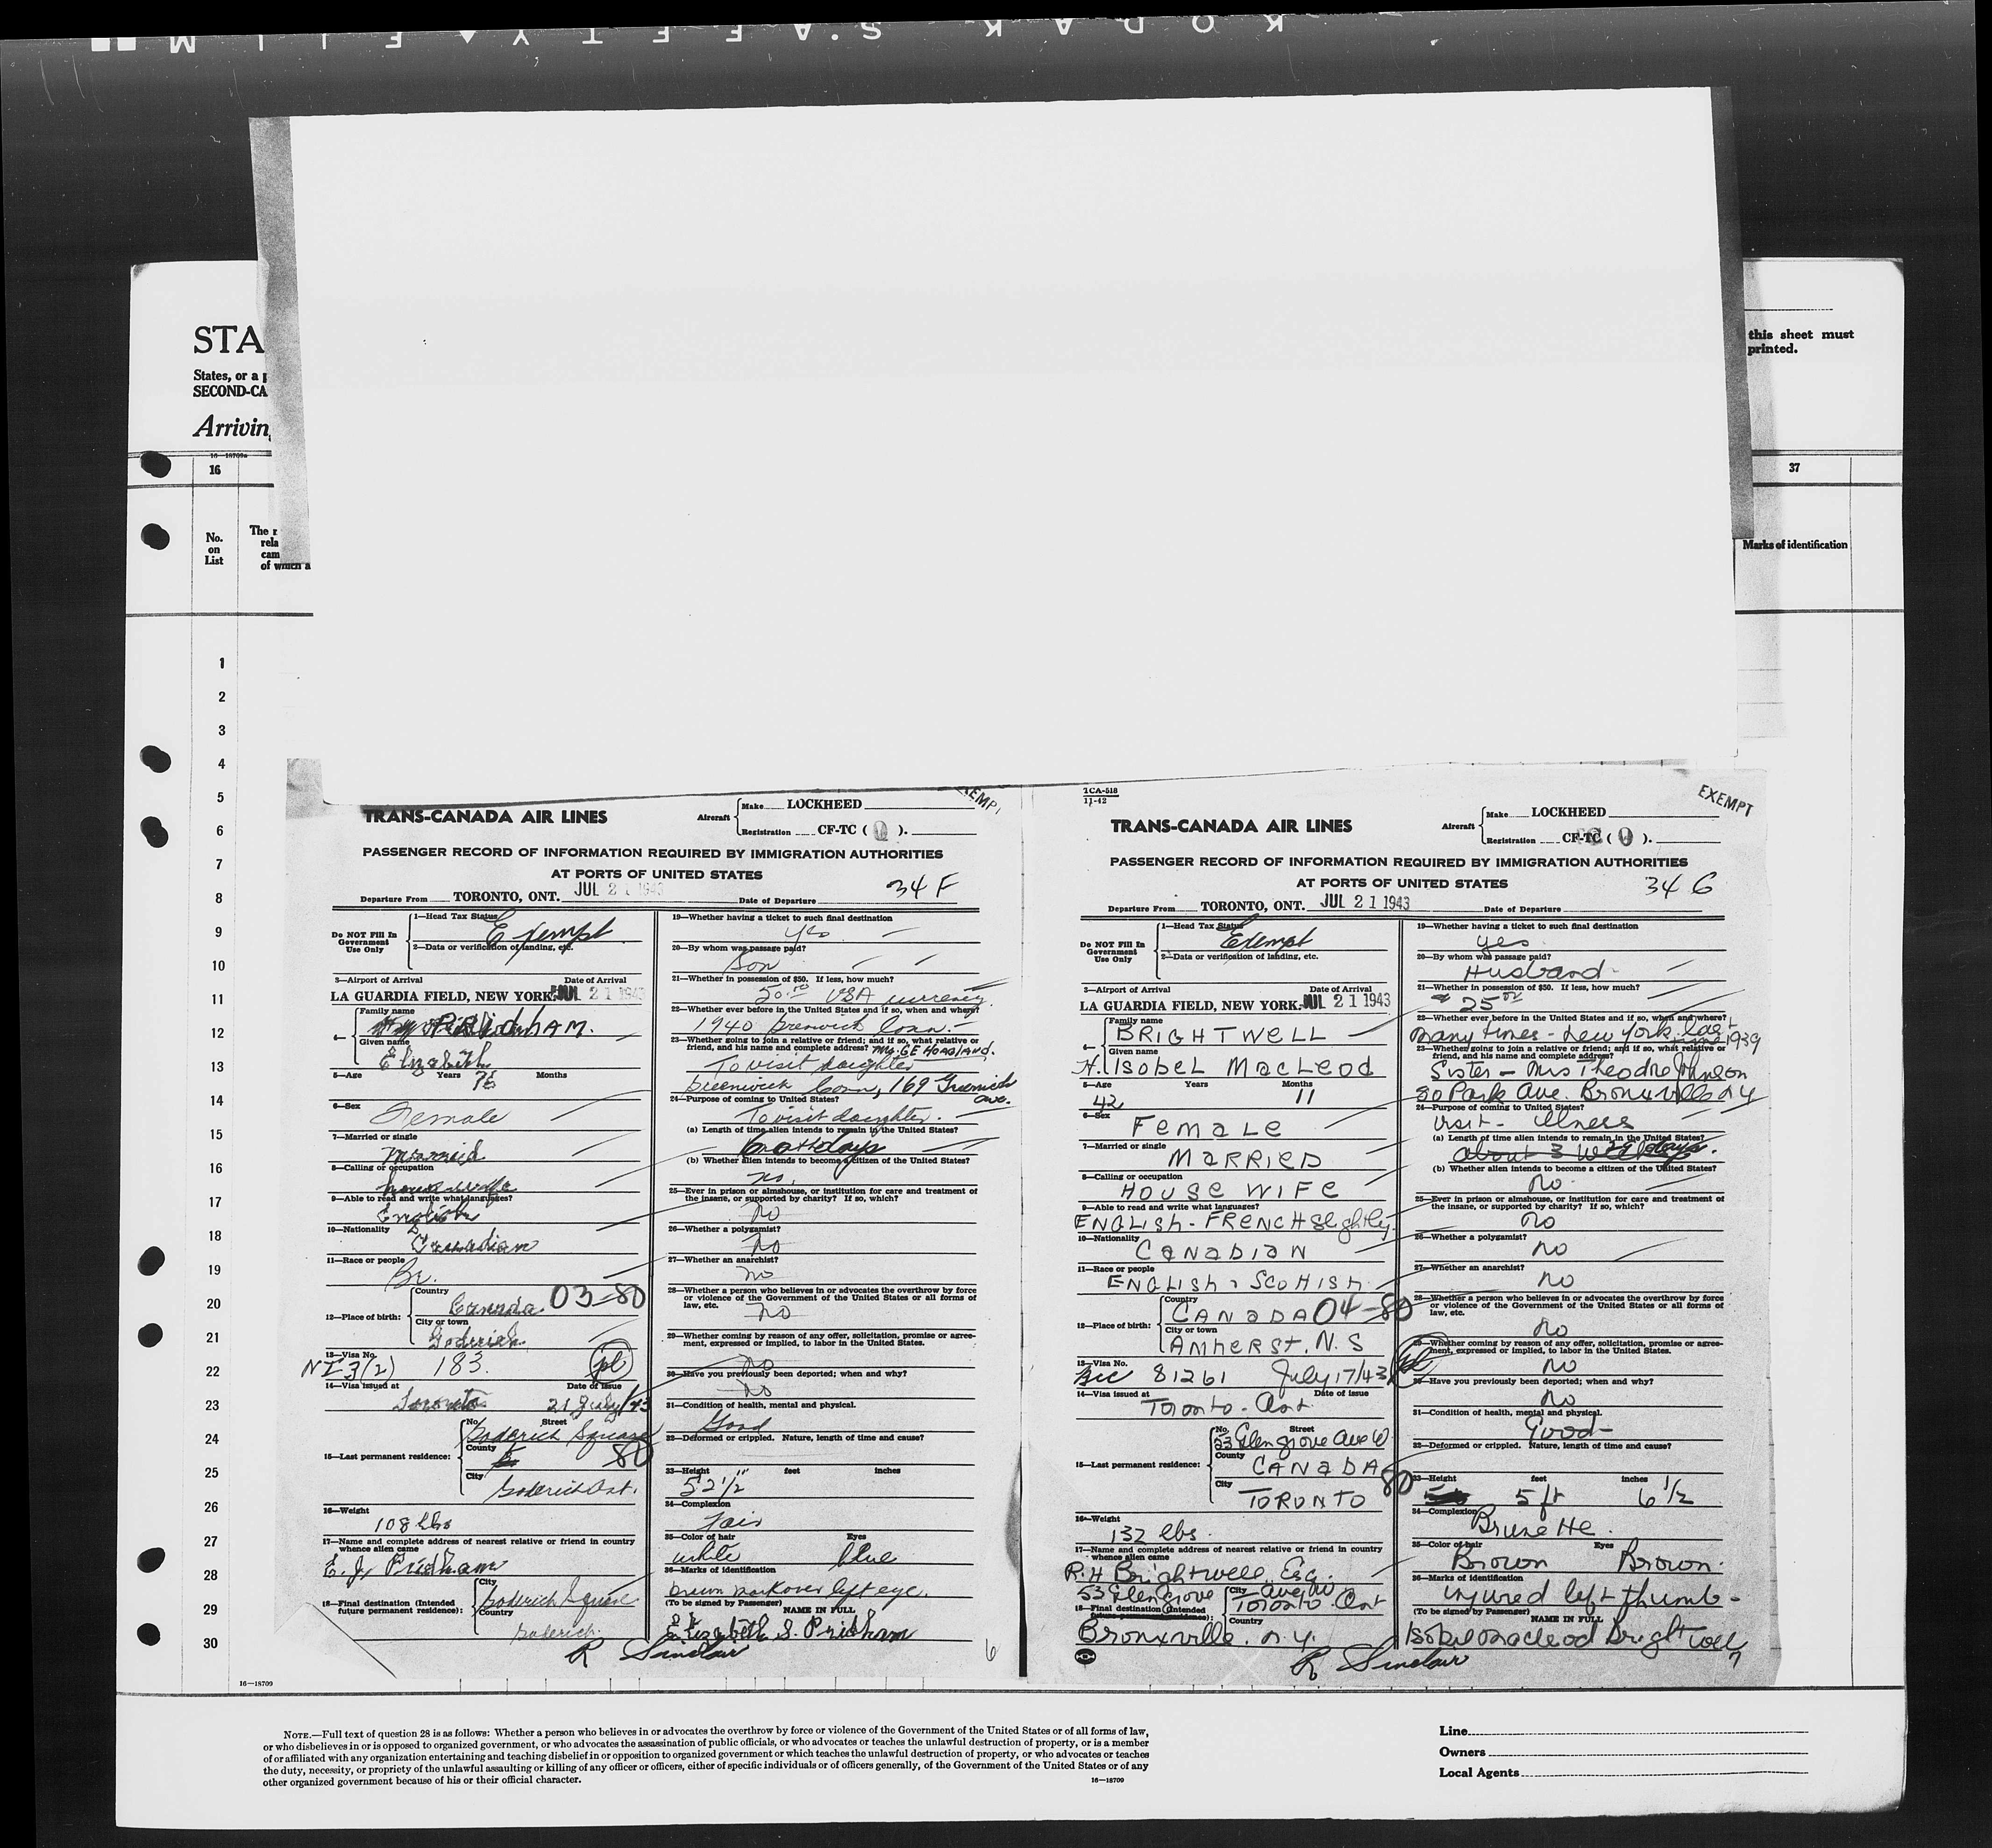 KODAK SAFETY FILM
STA
this sheet must
printed.
States, or a p
SECOND-CA
Arrivin
16—18709a
16
37
No.
on
List
The r
rela
cam
of which a
Marks of identification
1
2
3
4
5
6
7
8
9
10
11
12
13
14
15
16
17
18
19
20
21
22
23
24
25
26
27
28
29
30
EMPT
TRANS-CANADA AIR LINES
Aircraft
Make LOCKHEED
Registration CF-TC ( Q ).
PASSENGER RECORD OF INFORMATION REQUIRED BY IMMIGRATION AUTHORITIES
AT PORTS OF UNITED STATES
34 F
Departure From TORONTO, ONT. JUL 21 1943 Date of Departure
Do NOT Fill In
Government
Use Only
1—Head Tax Status
Exempt
2—Data or verification of landing, etc.
3—Airport of Arrival Date of Arrival
LA GUARDIA FIELD, NEW YORK JUL 21 1943
4— Family name
PRIDHAM.
Given name
Elizabeth
5—Age Years Months
78
6—Sex
Female
7—Married or single
Married
8—Calling or occupation
housewife
9—Able to read and write what languages?
English
10—Nationality
Canadian
11—Race or people
Br.
12—Place of birth:
Country
Canada 03-80
City or town
Goderich
13—Visa No.
NI-3(2) 183.
14—Visa issued at Date of Issue
Toronto 21 July/43
15—Last permanent residence:
No. Street
Goderich Square
County
80
City
Goderich Ont.
16—Weight
108 lbs
17—Name and complete address of nearest relative or friend in country
whence alien came
E. J. Pridham
18—Final destination (Intended
future permanent residence):
City
Goderich Square
Country
Goderich.
19—Whether having a ticket to such final destination
yes
20—By whom was passage paid?
Son
21—Whether in possession of $50. If less, how much?
50.00 USA currency
22—Whether ever before in the United States and if so, when and where?
1940 Greenwich Conn.
23—Whether going to join a relative or friend; and if so, what relative or
friend, and his name and complete address? Mrs. G E HOADLAND.
To visit daughter
Greenwich Conn, 169 Greenwich
ave.
24—Purpose of coming to United States?
To visit daughter.
(a) Length of time alien intends to remain in the United States?
days
(b) Whether alien intends to become a citizen of the United States?
no.
25—Ever in prison or almshouse, or institution for care and treatment of
the insane, or supported by charity? If so, which?
no
26—Whether a polygamist?
no
27—Whether an anarchist?
no
28—Whether a person who believes in or advocates the overthrow by force
or violence of the Government of the United States or all forms of
law, etc.
no
29—Whether coming by reason of any offer, solicitation, promise or agree-
ment, expressed or implied, to labor in the United States.
no
30—Have you previously been deported; when and why?
no
31—Condition of health, mental and physical.
Good
32—Deformed or crippled. Nature, length of time and cause?
33—Height feet inches
5'2 1/2"
34—Complexion
Fair
35—Color of hair Eyes
white blue
36—Marks of identification
brown mark over left eye.
(To be signed by Passenger) NAME IN FULL
Elizabeth S. Pridham
R Sinclair
6
TCA-518
11-42
EXEMPT
TRANS-CANADA AIR LINES
Aircraft
Make LOCKHEED
Registration CF-TC ( Q ).
PASSENGER RECORD OF INFORMATION REQUIRED BY IMMIGRATION AUTHORITIES
AT PORTS OF UNITED STATES
34 G
Departure From TORONTO, ONT. JUL 21 1943 Date of Departure
Do NOT Fill In
Government
Use Only
1—Head Tax Status
Exempt
2—Data or verification of landing, etc.
3—Airport of Arrival Date of Arrival
LA GUARDIA FIELD, NEW YORK JUL 21 1943
4— Family name
BRIGHTWELL
Given name
H. ISOBEL MACLEOD
5—Age Years Months
42 11
6—Sex
FEMALE
7—Married or single
MARRIED
8—Calling or occupation
HOUSE WIFE
9—Able to read and write what languages?
ENGLISH - FRENCH slightly.
10—Nationality
CANADIAN
11—Race or people
ENGLISH - SCOTTISH
12—Place of birth:
Country
CANADA 04-80
City or town
AMHERST, N.S
13—Visa No.
BCC 81261 July 17/43
14—Visa issued at Date of issue
Toronto - Ont
15—Last permanent residence:
No. Street
53 Glengrove Ave W
County
CANADA
80
City
TORONTO
16—Weight
132 lbs.
17—Name and complete address of nearest relative or friend in country
whence alien came
R. H Brightwell, Esq.
53 Glengrove Ave W
18—Final destination (Intended
future permanent residence):
City
Toronto Ont
Country
Bronxville. N.Y.
19—Whether having a ticket to such final destination
yes
20—By whom was passage paid?
Husband
21—Whether in possession of $50. If less, how much?
$ 25 00
22—Whether ever before in the United States and if so, when and where?
Many times - New York. last
June 1939
23—Whether going to join a relative or friend; and if so, what relative or
friend, and his name and complete address?
Sister - Mrs Theodre Johnson
80 Park Ave. Bronxville N Y
24—Purpose of coming to United States?
visit - illness
(a) Length of time alien intends to remain in the United States?
about 3 weeks 29 days.
(b) Whether alien intends to become a citizen of the United States?
no.
25—Ever in prison or almshouse, or institution for care and treatment of
the insane, or supported by charity? If so, which?
no
26—Whether a polygamist?
no
27—Whether an anarchist?
no
28—Whether a person who believes in or advocates the overthrow by force
or violence of the Government of the United States or all forms of
law, etc.
no
29—Whether coming by reason of any offer, solicitation, promise or agree-
ment, expressed or implied, to labor in the United States.
no
30—Have you previously been deported; when and why?
no
31—Condition of health, mental and physical.
Good
32—Deformed or crippled. Nature, length of time and cause?
33—Height feet inches
5 ft 6 1/2
34—Complexion
Brunette.
35—Color of hair Eyes
Brown Brown.
36—Marks of identification
injured left thumb-
(To be signed by Passenger) NAME IN FULL
Isobel Macleod Brightwell
R Sinclair
7
16—18709
NOTE.—Full text of question 28 is as follows: Whether a person who believes in or advocates the overthrow by force or violence of the Government of the United States or of all forms of law,
or who disbelieves in or is opposed to organized government, or who advocates the assassination of public officials, or who advocates or teaches the unlawful destruction of property, or is a member
of or affiliated with any organization entertaining and teaching disbelief in or opposition to organized government or which teaches the unlawful destruction of property, or who advocates or teaches
the duty, necessity, or propriety of the unlawful assaulting or killing of any officer or officers, either of specific individuals or of officers generally, of the Government of the United States or of any
other organized government because of his or their official character.
16—18709
Line
Owners
Local Agents